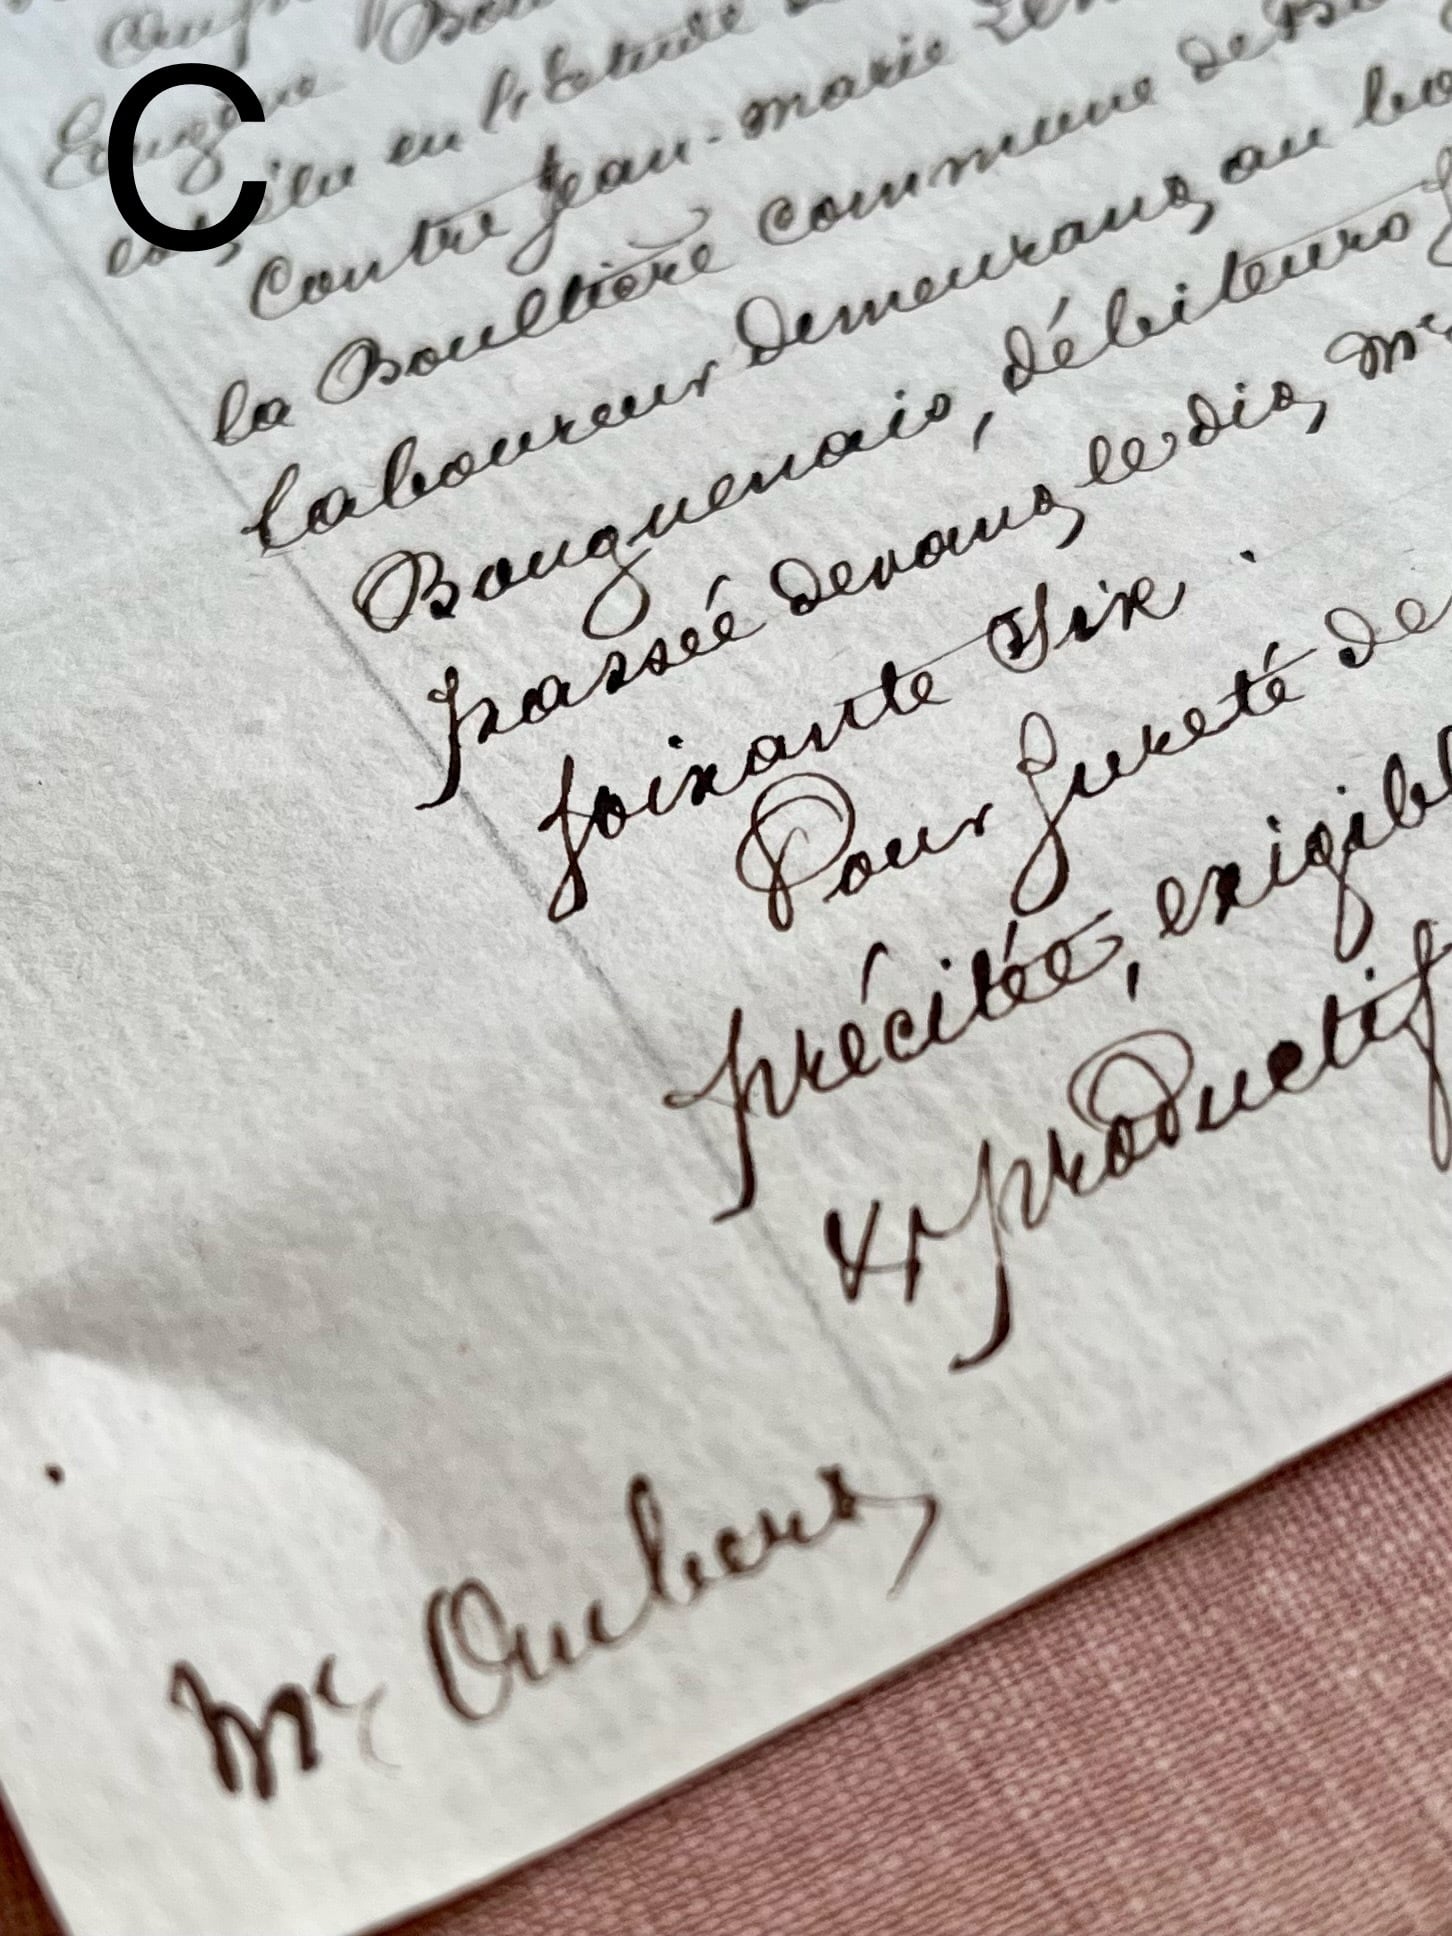 C
Eougène
est élu en l'Etude
Contre Jean-marie
la Boultière commune de
laboureur demeurant au bo
Bouguenais, débiteurs
passée devant le dit Me
soixante Six.
Pour sureté de
précitée, exigibl
& productif
Me Aubert